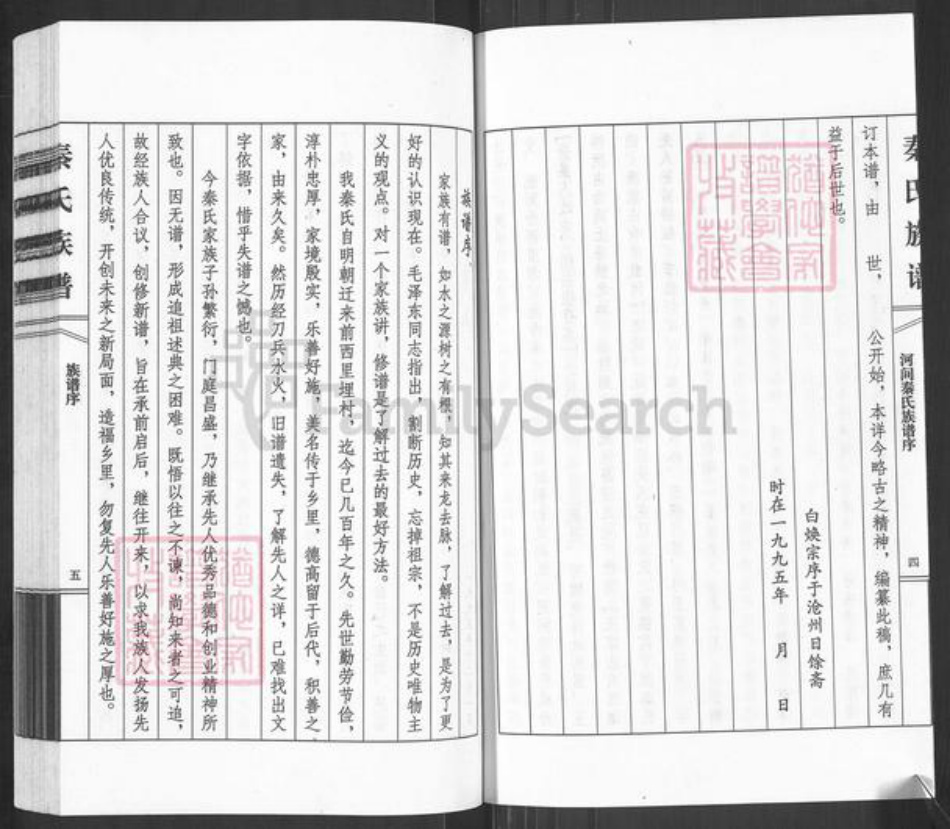 秦氏族谱
河间秦氏族谱序
四
订本谱，由　　世，　　公开始，本详今略古之精神，编纂此稿，庶几有
益于后世也。
白焕宗序于沧州日馀斋
时在一九九五年　月　日
族谱序
家族有谱，如水之源树之有根，知其来龙去脉，了解过去，是为了更
好的认识现在。毛泽东同志指出，割断历史，忘掉祖宗，不是历史唯物主
义的观点。对一个家族讲，修谱是了解过去的最好方法。
我秦氏自明朝迁来前西里埋村，迄今已几百年之久。先世勤劳节俭，
淳朴忠厚，家境殷实，乐善好施，美名传于乡里，德高留于后代，积善之
家，由来久矣。然历经刀兵水火，旧谱遗失，了解先人之详，已难找出文
字依据，惜乎失谱之憾也。
今秦氏家族子孙繁衍，门庭昌盛，乃继承先人优秀品德和创业精神所
致也。因无谱，形成追祖述典之困难。既悟以往之不谏，尚知来者之可追，
故经族人合议，创修新谱，旨在承前启后，继往开来，以求我族人发扬先
人优良传统，开创未来之新局面，造福乡里，勿复先人乐善好施之厚也。
秦氏族谱
族谱序
五
FamilySearch